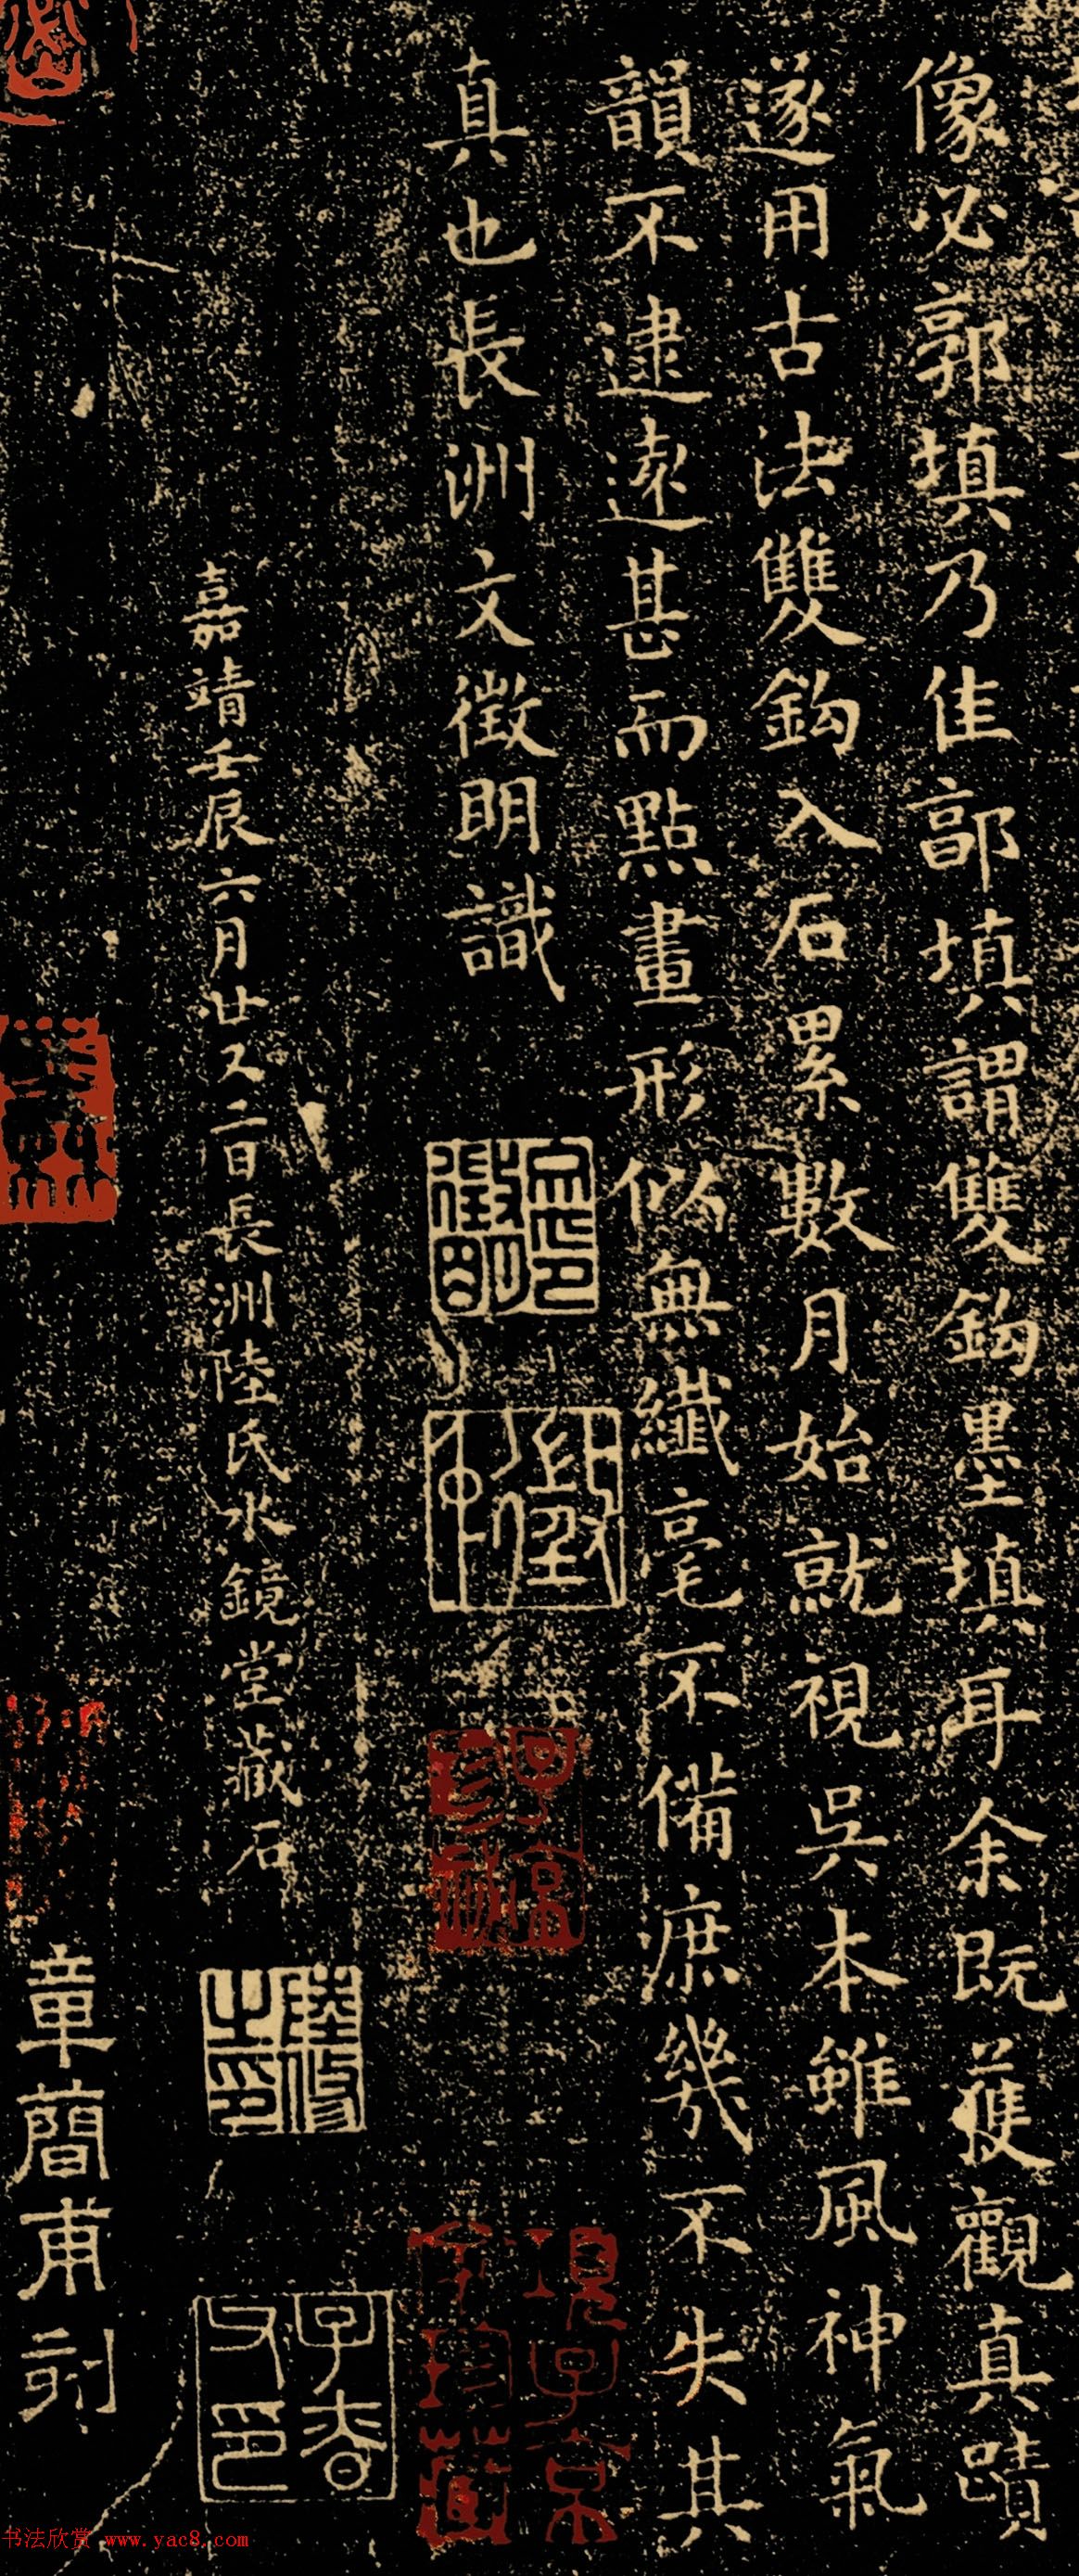 像必郭填乃佳郭填謂雙鈎墨填耳余既獲觀真蹟
遂用古法雙鈎入石累數月始就視吳本雖風神氣
韻不逮遠甚而點畫形似無纖毫不備庶幾不失其
真也長洲文徵明識
徵明印
停雲
嘉靖壬辰六月廿又二日長洲陸氏水鏡堂藏石
章簡甫刻
书法欣赏 www.yac8.com